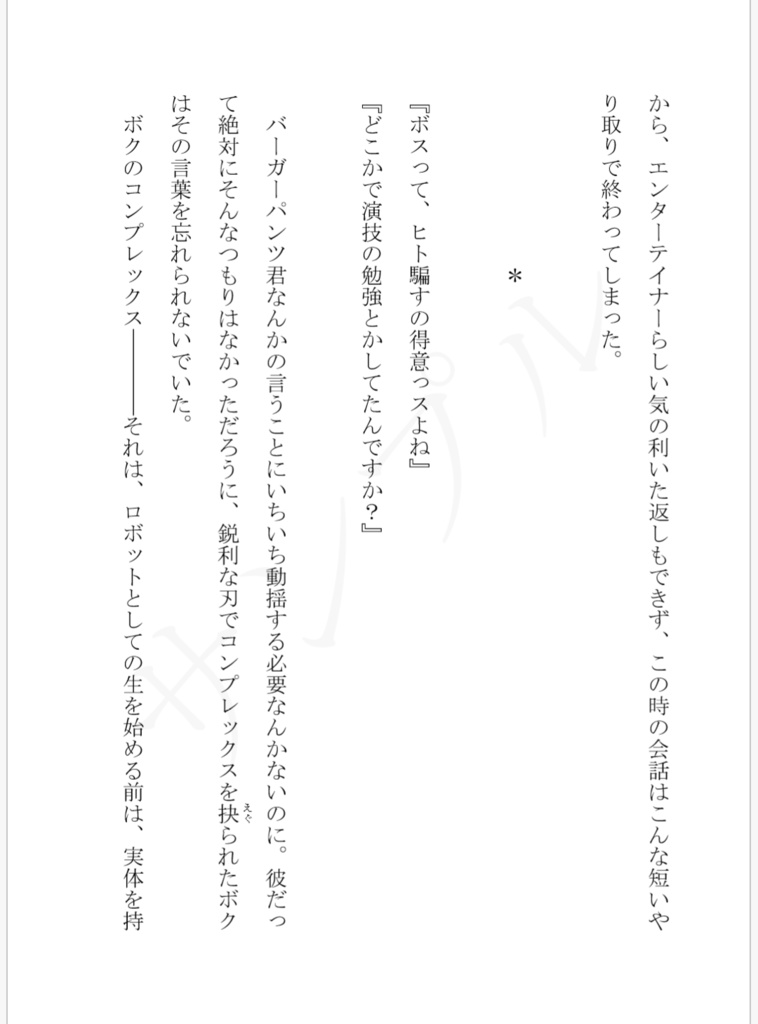 から、エンターテイナーらしい気の利いた返しもできず、この時の会話はこんな短いや
り取りで終わってしまった。
＊
『ボスって、ヒト騙すの得意っスよね』
『どこかで演技の勉強とかしてたんですか？』
バーガーパンツ君なんかの言うことにいちいち動揺する必要なんかないのに。彼だっ
て絶対にそんなつもりはなかっただろうに、鋭利な刃でコンプレックスを抉られたボク
えぐ
はその言葉を忘れられないでいた。
ボクのコンプレックス――――それは、ロボットとしての生を始める前は、実体を持
サンプル